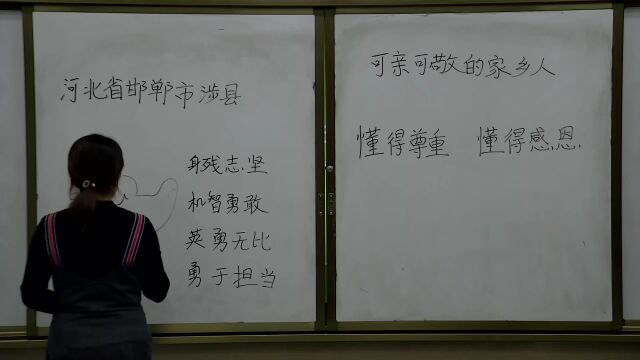 河北省邯郸市涉县
身残志坚
机智勇敢
英勇无比
勇于担当
可亲可敬的家乡人
懂得尊重 懂得感恩